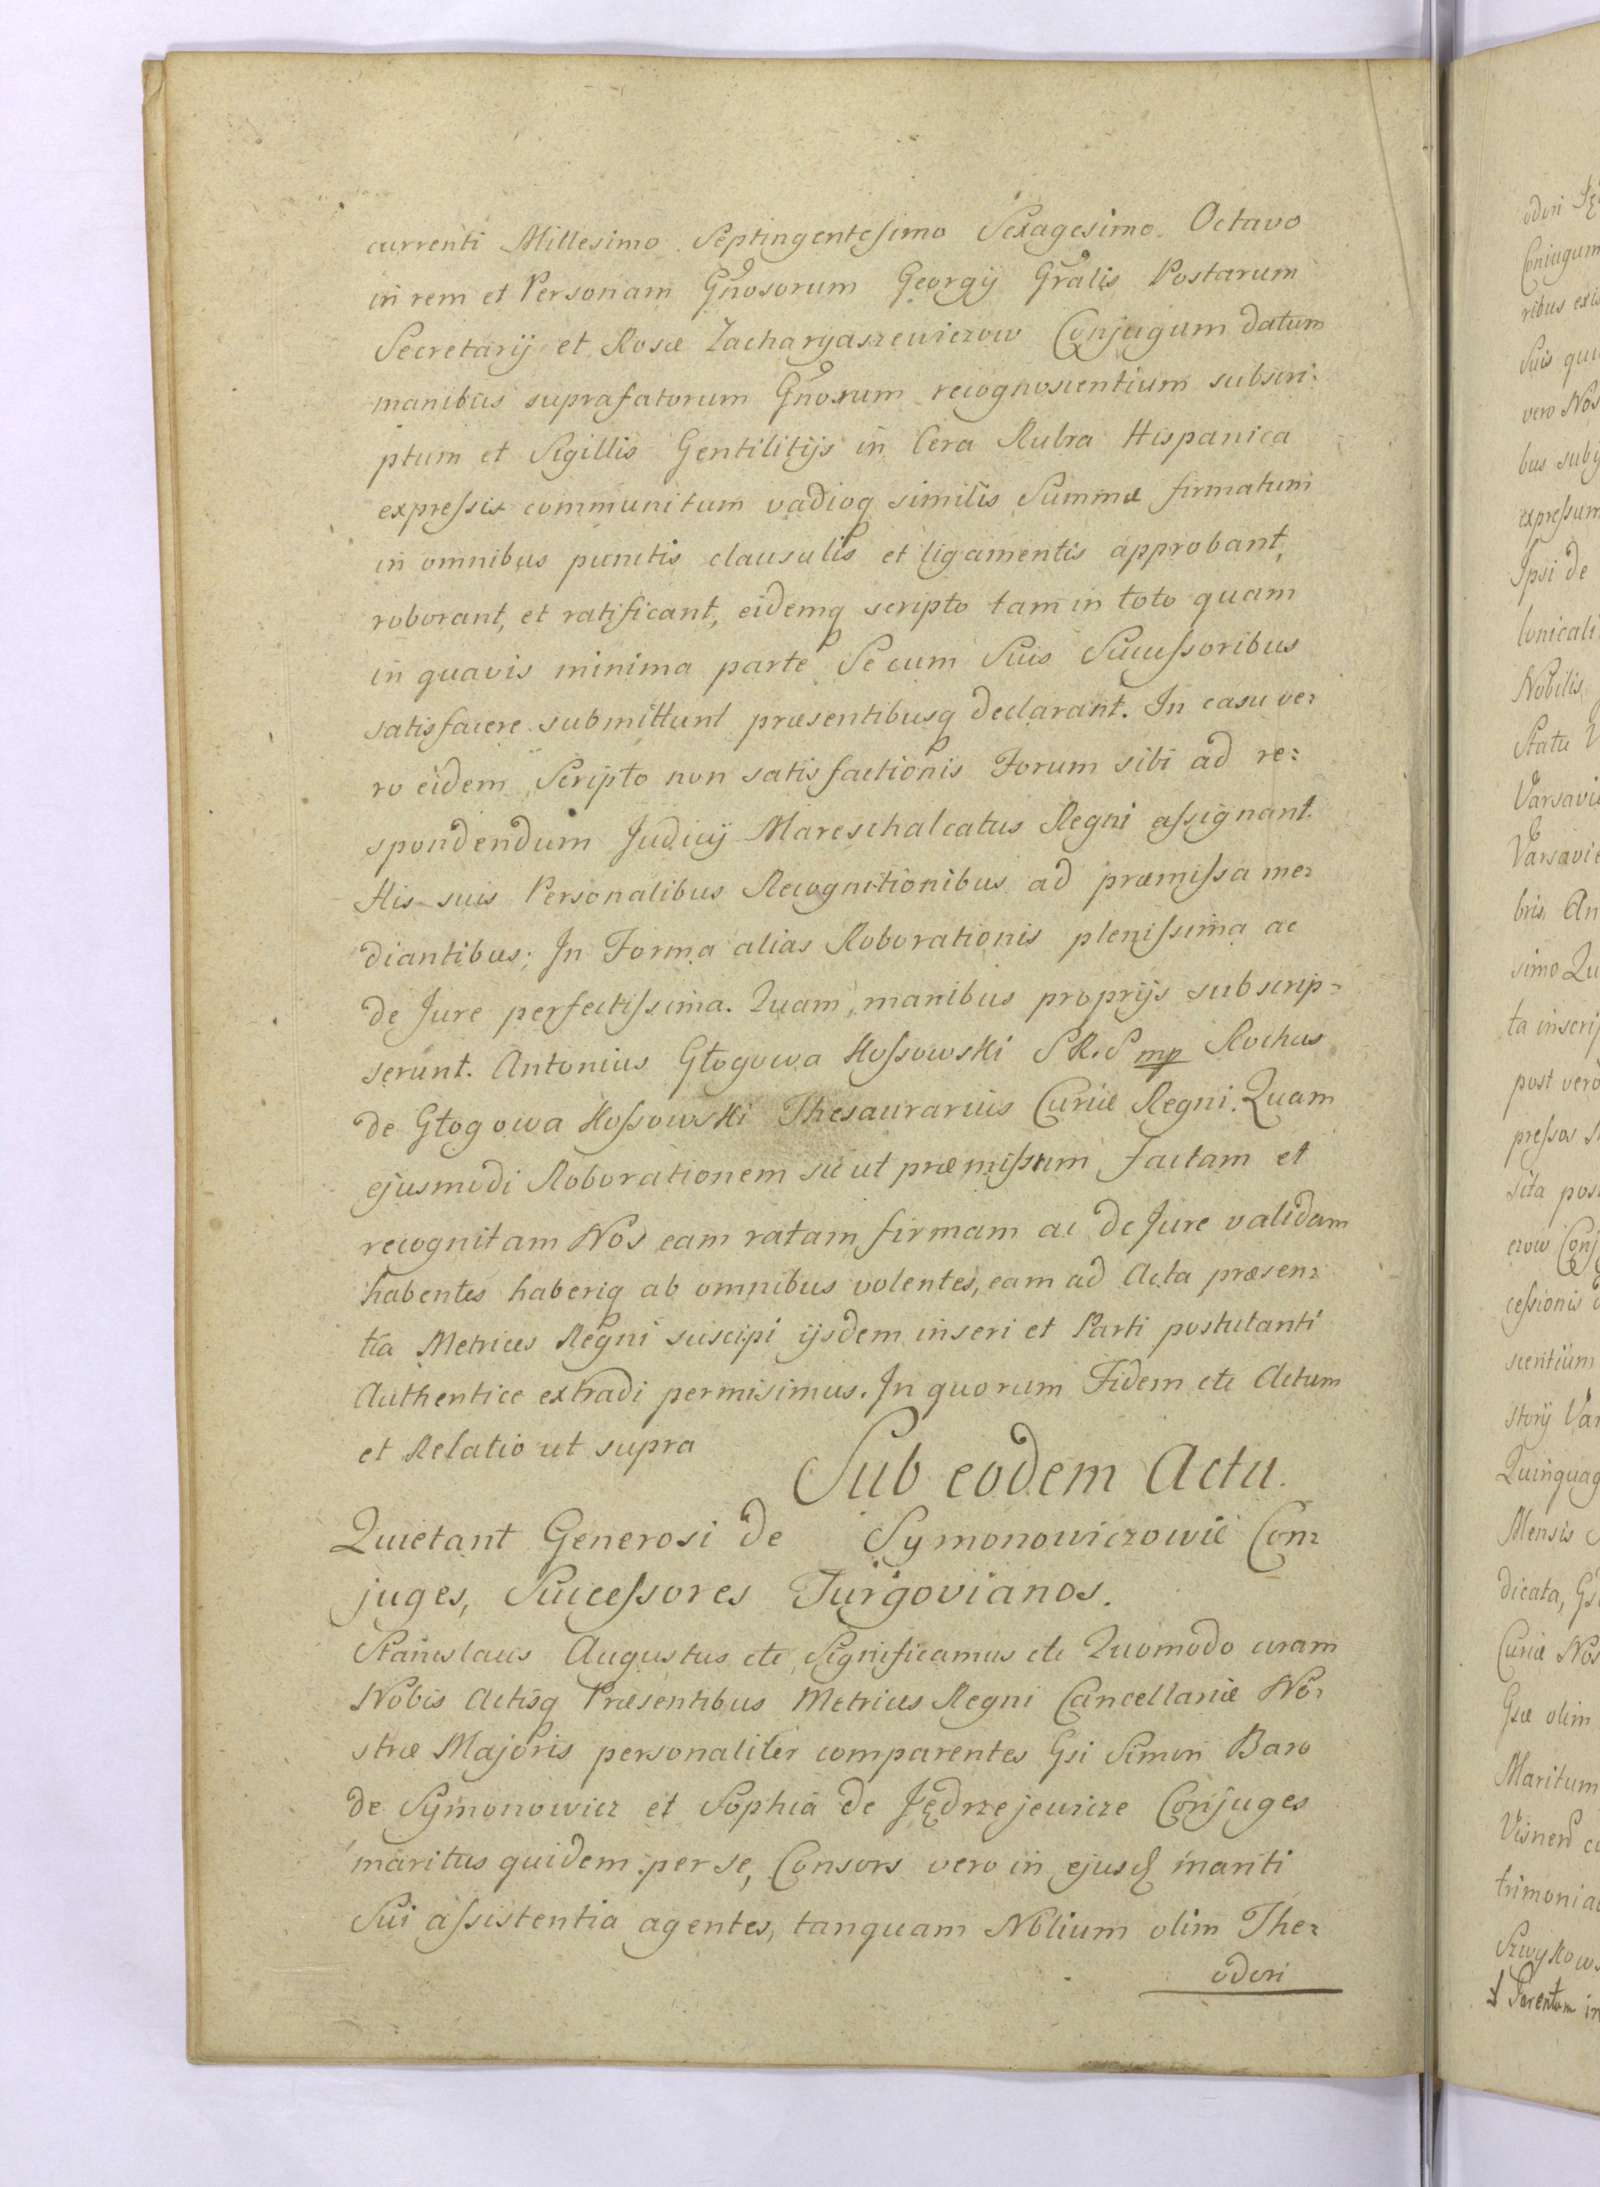 currenti Millesimo Septingentesimo Sexagesimo Octavo
in rem et Personam Gñosorum Georgij Gñralis Postarum
Secretarij et Rosæ Zacharyaszewiczow Conjugum datum
manibus suprafatorum Gñosrum recognoscentium subscri:
ptum et Sigillis Gentilitijs in Cera Rubra Hispanica
expressis communitum vadioq similis Summæ firmatum
in omnibus punctis clausulis et ligamentis approbant,
roborant, et ratificant, eidemq scripto tam in toto quam
in quavis minima parte Se cum Suis Successoribus
satisfacere submittunt præsentibusq declarant. In casu ve:
ro eidem Scripto non satisfactionis Forum sibi ad re:
spondendum Judicij Mareschalcatus Regni assignant.
His suis Personalibus Recognitionibus ad præmissa me:
diantibus; In Forma alias Roborationis plenissima ac
de Jure perfectissima. Quam manibus proprijs subscrip:
serunt. Antonius Głogowa Kossowski S R. S mp Rochus
de Głogowa Kossowski Thesaurarius Curiæ Regni. Quam
ejusmodi Roborationem sicut præmissum factam et
recognitam Nos eam ratam firmam ac de Jure validam
habentes haberiq ab omnibus volentes, eam ad Acta præsen:
tia Metrices Regni suscipi ijsdem inseri et Parti postulanti
Authentice extradi permisimus. In quorum Fidem etc Actum
et Relatio ut supra
Sub eodem Actu.
Quietant Generosi de Symonowiczowie Con:
juges, Successores Turgovianos.
Stanislaus Augustus etc Significamus etc Quomodo coram
Nobis Actisq Præsentibus Metrices Regni Cancellariæ No:
stræ Majoris personaliter comparentes Gsi Simon Baro
de Symonowicz et Sophia de Jędrzejewicze Conjuges
maritus quidem per se, Consors vero in ejusd mariti
Sui assistentia agentes, tanquam Nblium olim The:
odori
odori
Coniugum
ribus
Suis
vero Nos
bus
expressum
Ipsi de
lonicali
Nobilis
Statu
Varsavie
Varsavie
bris An
simo Qu
ta inscrip
post vero
pressos
sita
czow Conj
cessionis
scentium
storij Var
Quinquag
Mensis
dicata,
Curiæ Nos
Gsæ olim
Maritum
trimonia
Szwykows
Parentum in